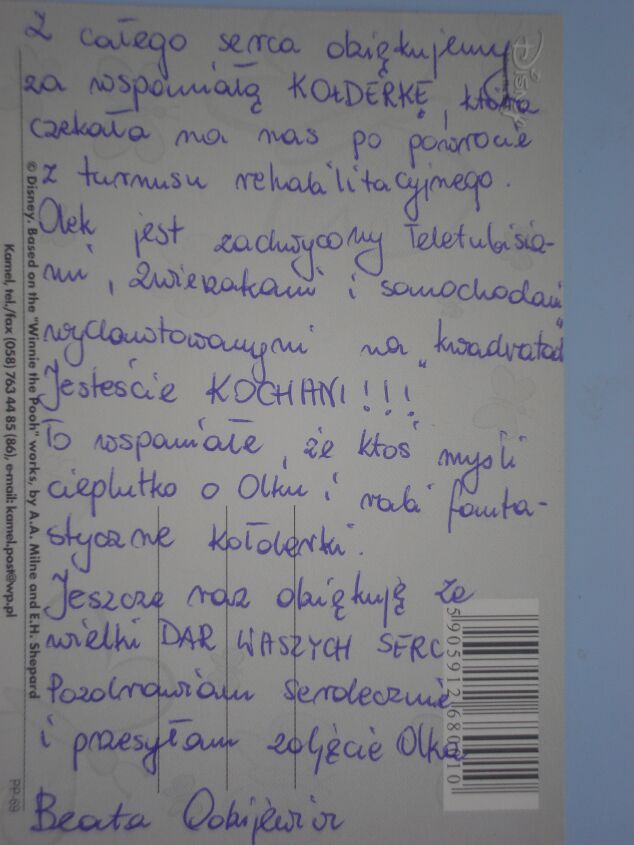 Z całego serca dziękujemy
za wspaniałą KOŁDERKĘ, która
czekała na nas po powrocie
z turnusu rehabilitacyjnego.
Olek jest zachwycony Teletubisia-
mi, zwierzakami i samochodami
wydawtowanymi na "kwadratach"
Jesteście KOCHANI!!!
To wspaniałe, że ktoś myśli
cieplutko o Olku i robi fanta-
styczne kołderki.
Jeszcze raz dziękuję za
wielki DAR WASZYCH SERC
Pozdrawiam serdecznie
i przesyłam zdjęcie Olka
Beata
Disney
© Disney. Based on the "Winnie the Pooh" works, by A.A. Milne and E.H. Shepard
Kamel, tel./fax (058) 763 44 85 (86), e-mail: kamel.post@wp.pl
PP-69
5905912680010